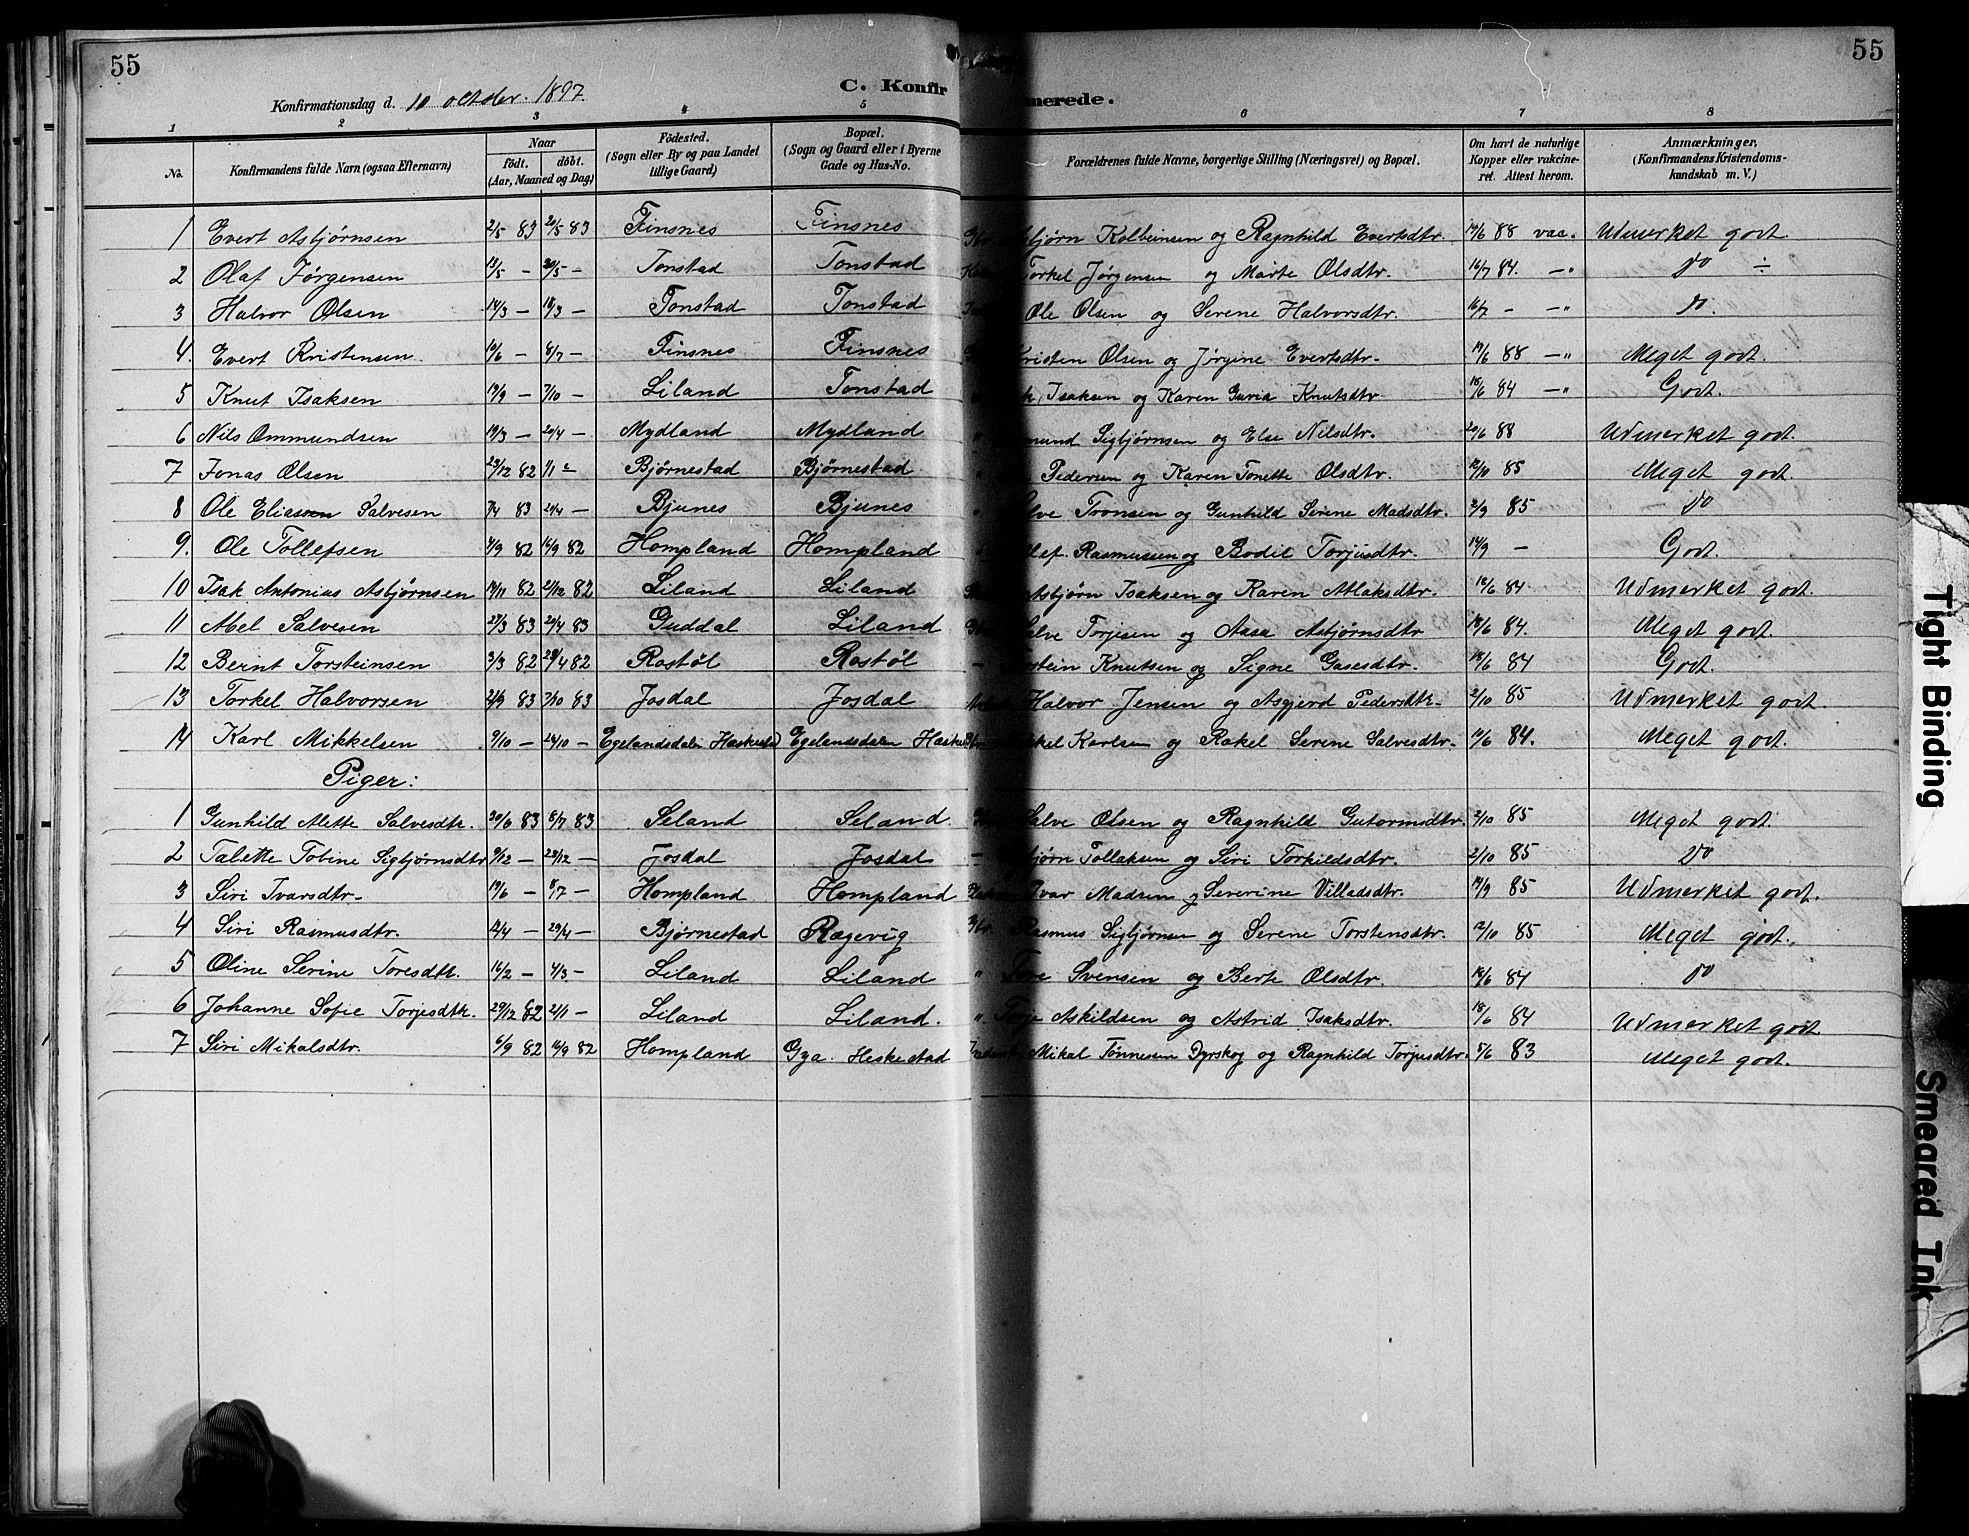 55
55
Konfirmationsdag d. 10 october. 1897.
C. Konfir
merede.
1 2 3 4 5 6 7 8
No. Konfirmandens fulde Navn (ogsaa Efternavn) Naar födt. döbt. (Aar, Maaned og Dag) Födested. (Sogn eller By og paa Landet tillige Gaard) Bopæl. (Sogn og Gaard eller i Byerne Gade og Hus-No. Forældrenes fulde Navne, borgerlige Stilling (Næringsvei) og Bopæl. Om havt de naturlige Kopper eller vakcineret. Attest herom. Anmærkninger, (Konfirmandens Kristendomskundskab m. V.)
1 Evert Asbjørnsen 2/5 83 20/5 83 Finsnes Finsnes bjørn Kolbeinsen og Ragnhild Evertsdtr. 19/6 88 vac. Udmerket godt
2 Olaf Jørgensen 13/5 — 20/5 — Tonstad Tonstad Torkel Jørgensen og Marte Olsdtr. 16/7 84. —" do ÷
3 Halvor Olsen 14/3 — 18/3 — Tonstad Tonstad Ole Olsen og Serene Halvorsdtr. 16/7 — —" do.
4. Evert Kristensen 10/6 — 8/7 — Finsnes Finsnes Kristen Olsen og Jørgine Evertsdtr. 19/6 88 —" Meget godt.
5 Knut Isaksen 19/9 — 7/10 — Liland Tonstad Isaksen og Karen Guria Knutsdtr 18/6 84 —" Godt.
6 Nils Ommundsen 19/3 — 20/4 — Mydland Mydland mund Sigbjørnsen og Else Nilsdtr. 20/6 88 Udmerket godt.
7 Jonas Olsen 29/12 82 1/1 Bjørnestad Bjørnestad Pedersen og Karen Tonette Olsdtr. 12/10 85 Meget godt.
8 Ole Eliassen Salvesen 7/4 83 20/4 — Bjunes Bjunes lve Tronsen og Gunhild Serene Madsdtr. 2/9 85 — do
9. Ole Tollefsen 4/9 82 16/9 82 Hompland Hompland lef Rasmussen og Bodil Torjusdtr. 14/9 — Godt.
10 Isak Antonius Asbjørnsen 19/11 82 21/12 82 Liland Liland Asbjørn Isaksen og Karen Atlaksdtr. 18/6 84. Udmerket godt.
11 Abel Salvesen 27/3 83 20/4 83 Guddal Liland Salve Torjesen og Aasa Asbjørnsdtr 18/6 84. Meget godt.
12 Bernt Torsteinsen 3/3 82 28/4 82 Rostøl Rostøl rstein Knutsen og Signe Gasesdtr. 18/6 84 Godt.
13 Torkel Halvorsen 21/9 83 7/10 83 Josdal Josdal Halvor Jensen og Asgjerd Pedersdtr. 2/10 85 Udmerket godt.
14 Karl Mikkelsen 9/10 — 28/10 — Egelandsdalen Heskestad Egelandsdalen Heske kkel Karlsen og Rakel Serene Salvesdtr. 19/6 84. Meget godt.
Piger:
1 Gunhild Alette Salvesdtr. 20/6 83 8/7 83 Seland Seland. Salve Olsen og Ragnhild Gutormsdtr. 2/10 85 Meget godt.
2 Talette Tobine Sigbjørnsdtr 9/12 — 29/12 — Josdal Josdal bjørn Tollaksen og Siri Torkildsdtr. 2/10 85 do
3 Siri Ivarsdtr. 19/6 — 8/7 — Hompland Hompland Ivar Madsen og Severine Villadsdtr. 14/9 85 Udmerket godt.
4 Siri Rasmusdtr. 12/4 — 29/4 — Bjørnestad Rægevig Rasmus Sigbjørnsen og Serene Torstensdtr. 12/10 85 Meget godt.
5 Oline Serine Toresdtr. 16/2 — 4/3 — Liland Liland " Tore Svensen og Berte Olsdtr. 18/6 84 do
6 Johanne Sofie Torjesdtr. 29/12 82 2/1 — Liland Liland. " Torje Askildsen og Astrid Isaksdtr. 18/6 84 Udmerket godt.
7 Siri Mikalsdtr. 6/9 82 16/9 82 Hompland Gya. Heskestad Mikal Tønnesen Dyrskog og Ragnhild Torjusdtr. 5/6 83 Meget godt.
Tight Binding
Smeared Ink